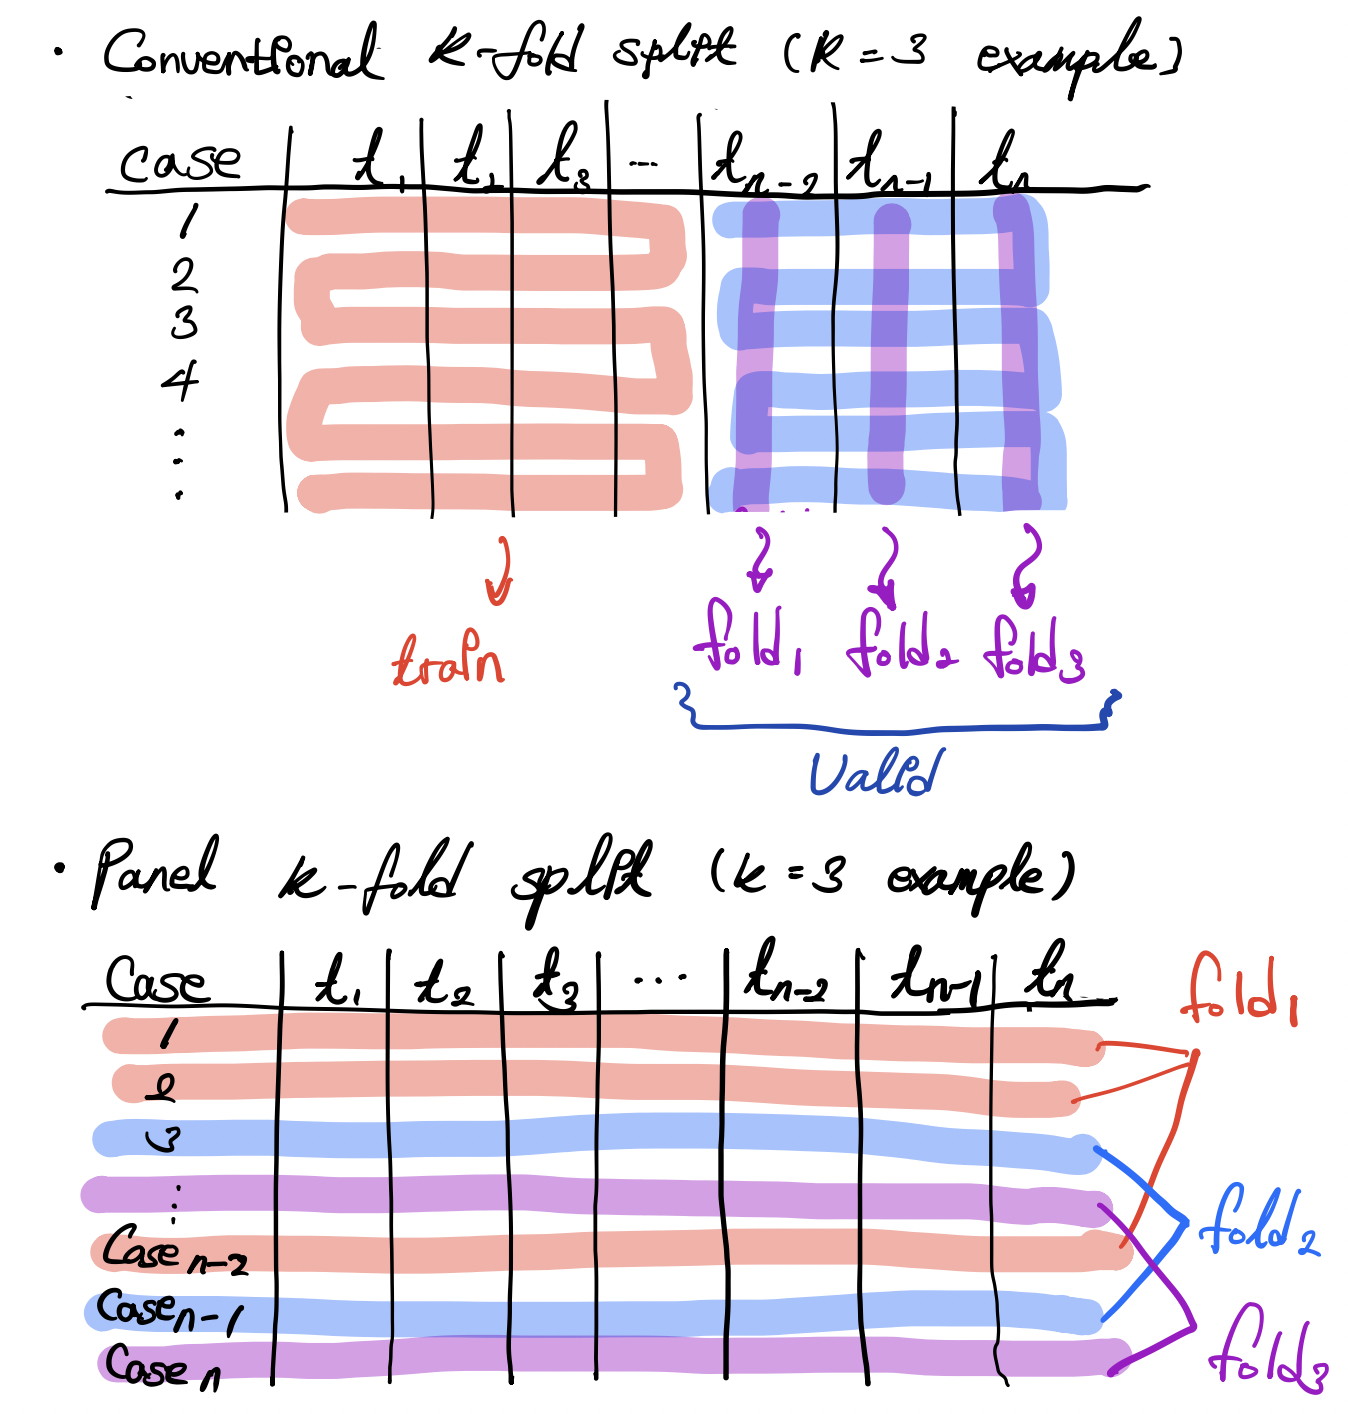 · Conventional k-fold split (k = 3 example)
case t₁ t₂ t₃ ... tₙ₋₂ tₙ₋₁ tₙ
1
2
3
4
⋮
train
fold₁ fold₂ fold₃
Valid
· Panel k-fold split (k = 3 example)
Case t₁ t₂ t₃ ... tₙ₋₂ tₙ₋₁ tₙ
fold₁
1
2
3
⋮
fold₂
Caseₙ₋₂
Caseₙ₋₁
Caseₙ
fold₃